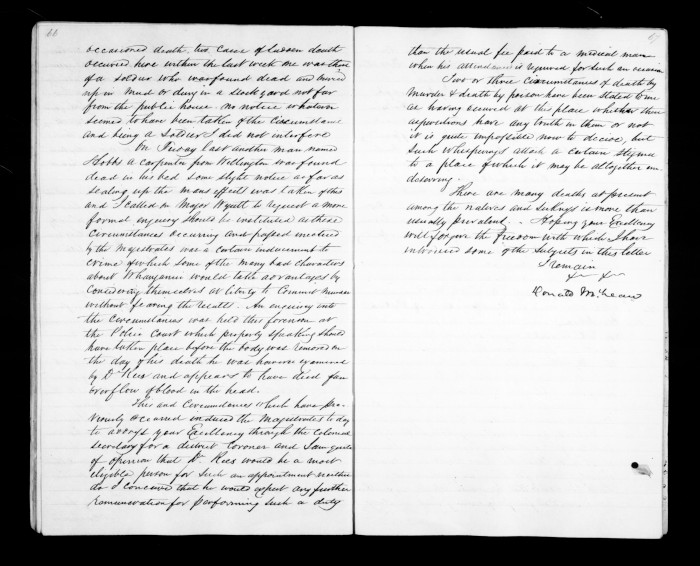 66
occasioned death. two cases of sudden death
occured here within the last week one was that
of a soldier who was found dead and buried
up in mud or dung in a stock yard not far
from the public house no notice whatever
seemed to have been taken of the circumstance
and being a soldier I did not interfere
On Friday last another man named
Hobbs a carpenter from Wellington was found
dead in his bed some slight notice as far as
sealing up the mans effects was taken of this
and I called on Major Wyatt to request a more
formal enquiry should be instituted as these
circumstances occurring and passed unnoticed
by the Magistrates was a certain inducement to
crime of which some of the many bad characters
about Whanganui would take advantages by
considering themselves at liberty to commit murder
without fearing the results. An enquiry into
the circumstances was held this forenoon at
the Police Court which properly speaking should
have taken place before the body was removed on
the day of his death he was however examined
by Dr Rees and appears to have died from
overflow of blood in the head.
This and circumstances which have pre-
viously occurred induced the Magistrates to day
to your Excellency through the Colonial
Secretary for a district Coroner and I am quite
of opinion that Dr Rees would be a most
eligible person for such an appointment neither
do I conceive that he would expect any further
remuneration for performing such a duty
67
than the usual fee paid to a medical man
when his attendance is required for such an occasion
Two or three circumstances of death by
murder & death by poison have been stated to me
as having occured at this place whether these
aspersions have any truth in them or not
it is quite impossible now to decide, but
such whisperings attach a certain stigma
to a place of which it may be altogether un-
deserving.
There are many deaths at present
among the natives and sickness is more than
usually prevalent. - Hoping your Excellency
will forgive the freedom with which I have
introduced some of the subjects in this letter
I remain
Donald McLean